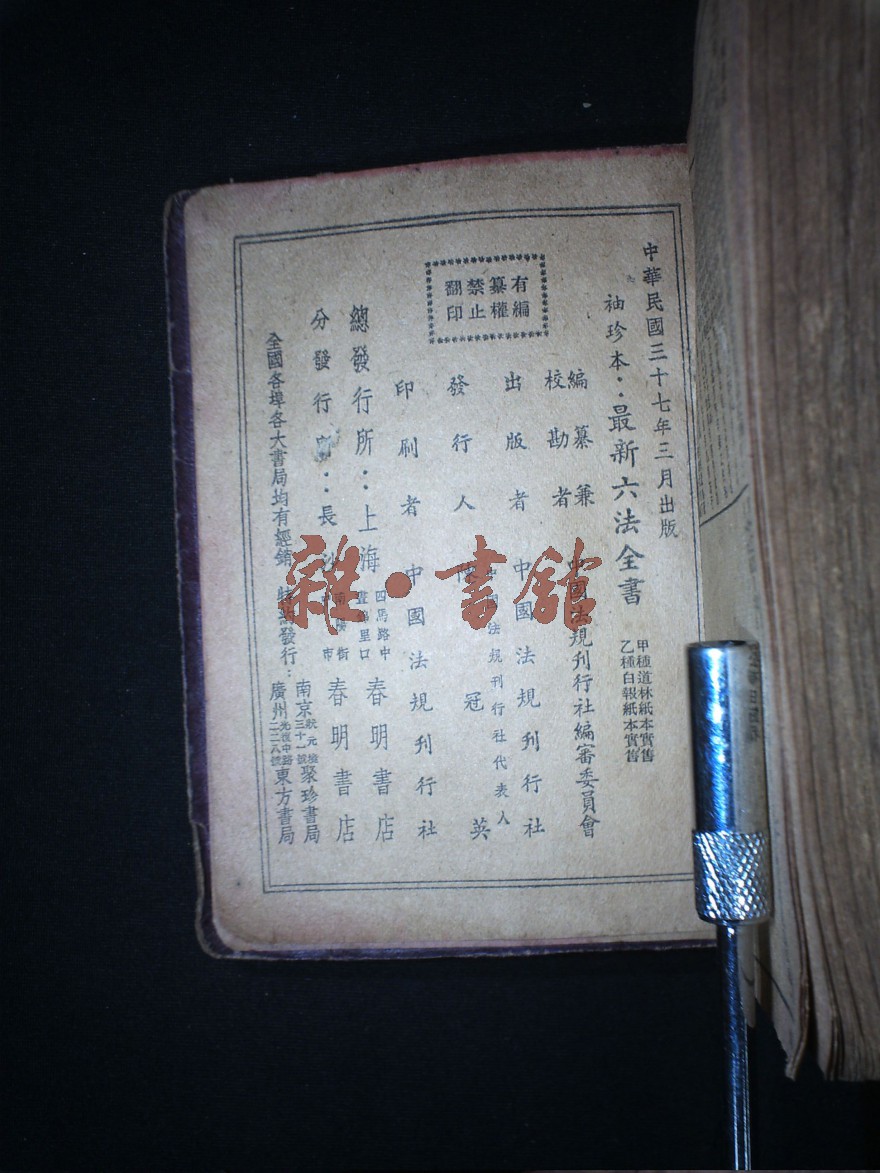 中華民國三十七年三月出版
袖珍本：最新六法全書
甲種道林紙本實售
乙種白報紙本實售
有編
纂權
禁止
翻印
編纂兼
校勘者
中國法規刊行社編審委員會
出版者 中國法規刊行社
中國法規刊行社代表人
發行人 冠英
印刷者 中國法規刊行社
總發行所：上海 四馬路中 晝錦里口 春明書店
分發行所：長沙 南陽街 春明書店
全國各埠各大書局均有經銷
特約發行：
南京 狀元境 三十一號 聚珍書局
廣州 光復中路 二二八號 東方書局
雜·書館